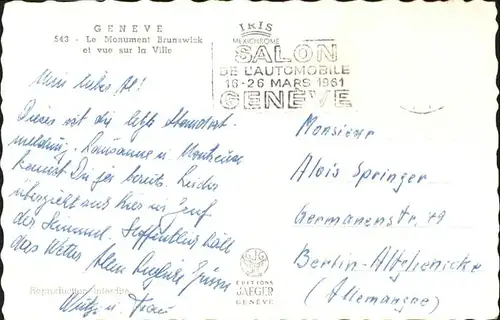 GENEVE
543 - Le Monument Brunswick
et vue sur la Ville
IRIS
MEXICHROME
SALON
DE L'AUTOMOBILE
16-26 MARS 1961
GENÈVE
Mein liebes Al!
Dieses ist die letzte Standort-
meldung. Lausanne u. Montreux
kennst Du ja bereits. Leider
überzieht aus hier in Genf
der Himmel. Hoffentlich hält
das Wetter. Grüsse
u. Frau
Reproduction interdite
EDITIONS
JAEGER
GENÈVE
Monsieur
Alois Springer
Germanenstr. 79
Berlin-Altglienicke
(Allemagne)